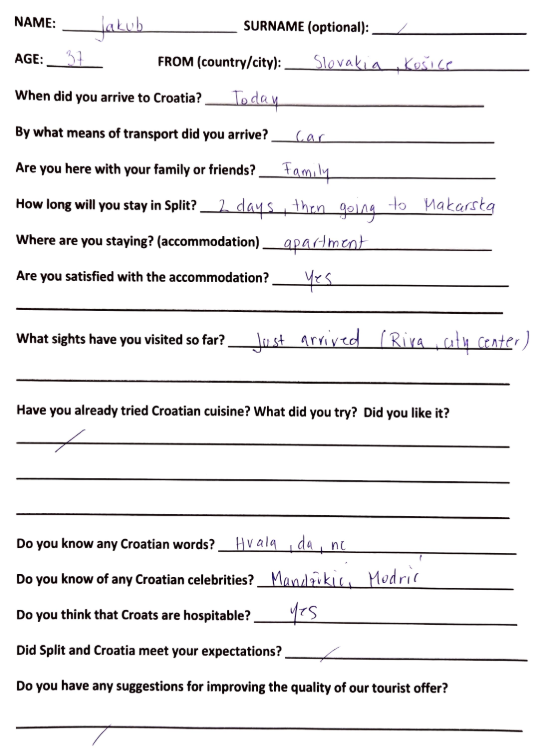 NAME: Jakub SURNAME (optional): /
AGE: 37 FROM (country/city): Slovakia, Košice
When did you arrive to Croatia? Today
By what means of transport did you arrive? Car
Are you here with your family or friends? Family
How long will you stay in Split? 2 days, then going to Makarska
Where are you staying? (accommodation) apartment
Are you satisfied with the accommodation? yes
What sights have you visited so far? Just arrived (Riva, city center)
Have you already tried Croatian cuisine? What did you try? Did you like it?
/
Do you know any Croatian words? Hvala, da, ne
Do you know of any Croatian celebrities? Mandžukic, Modrić
Do you think that Croats are hospitable? yes
Did Split and Croatia meet your expectations? /
Do you have any suggestions for improving the quality of our tourist offer?
/